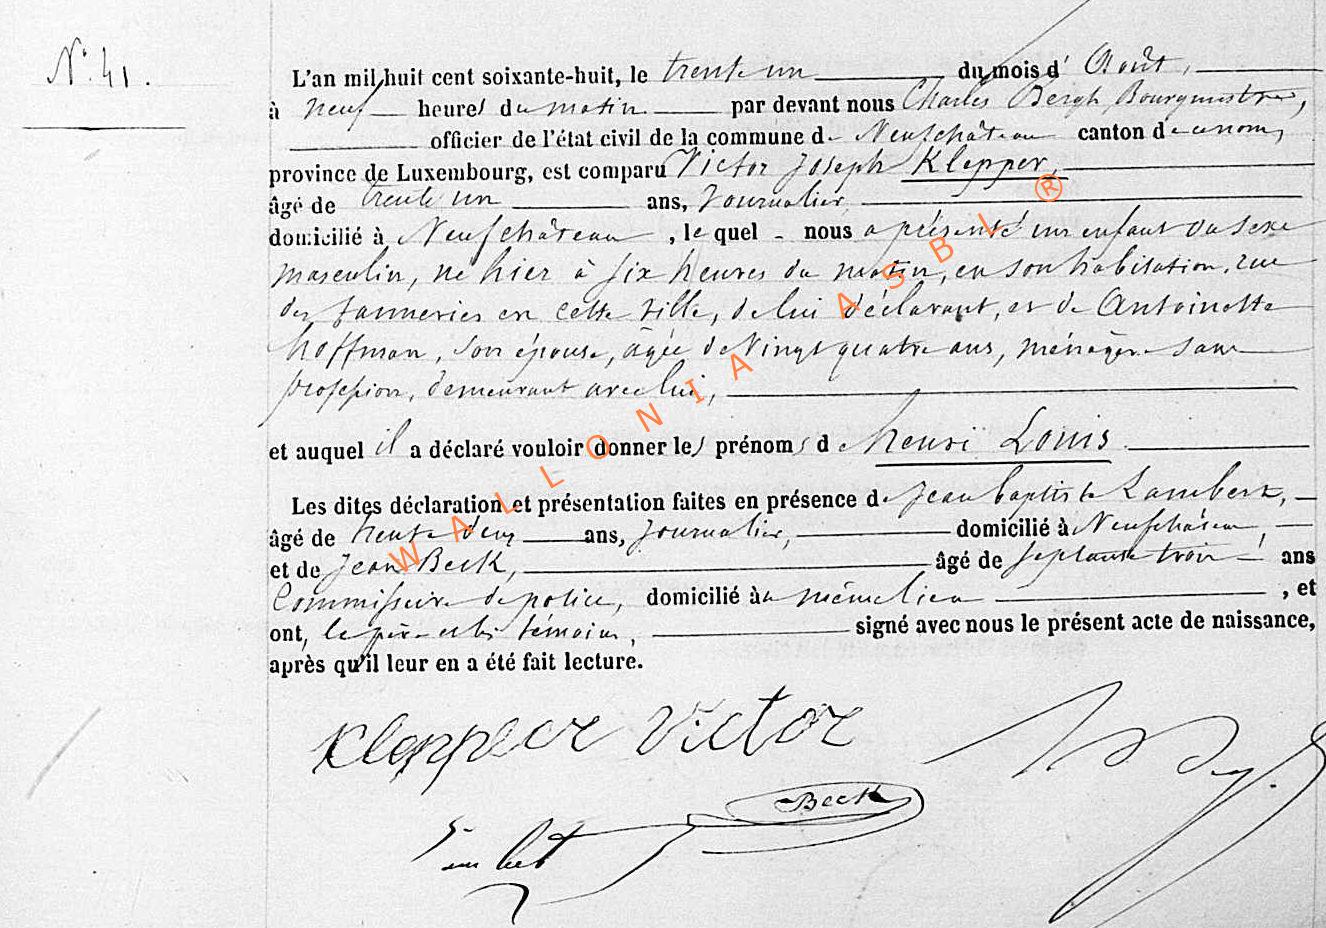 N° 41.
L'an mil huit cent soixante-huit, le trente un du mois d' Août,
à neuf heures du matin par devant nous Charles Bergh, Bourgmestre,
officier de l'état civil de la commune de Neufchâteau canton de ce nom,
province de Luxembourg, est comparu Victor Joseph Klepper,
âgé de trente un ans, Journalier,
domicilié à Neufchâteau, le quel nous a présenté un enfant du sexe
masculin, né hier à six heures du matin, en son habitation, rue
des tanneries en cette ville, de lui déclarant, et de Antoinette
Hoffman, son épouse, âgée de Vingt quatre ans, ménagère sans
profession, demeurant avec lui,
et auquel il a déclaré vouloir donner les prénoms de Henri Louis
Les dites déclaration et présentation faites en présence de Jean baptiste Lambert,
âgé de trente deux ans, Journalier, domicilié à Neufchâteau,
et de Jean Beck, âgé de septante trois ans
Commissaire de police, domicilié au même lieu, et
ont, le père et les témoins, signé avec nous le présent acte de naissance,
après qu'il leur en a été fait lecture.
Klepper Victor
Beck
WALLONIA ASBL ®